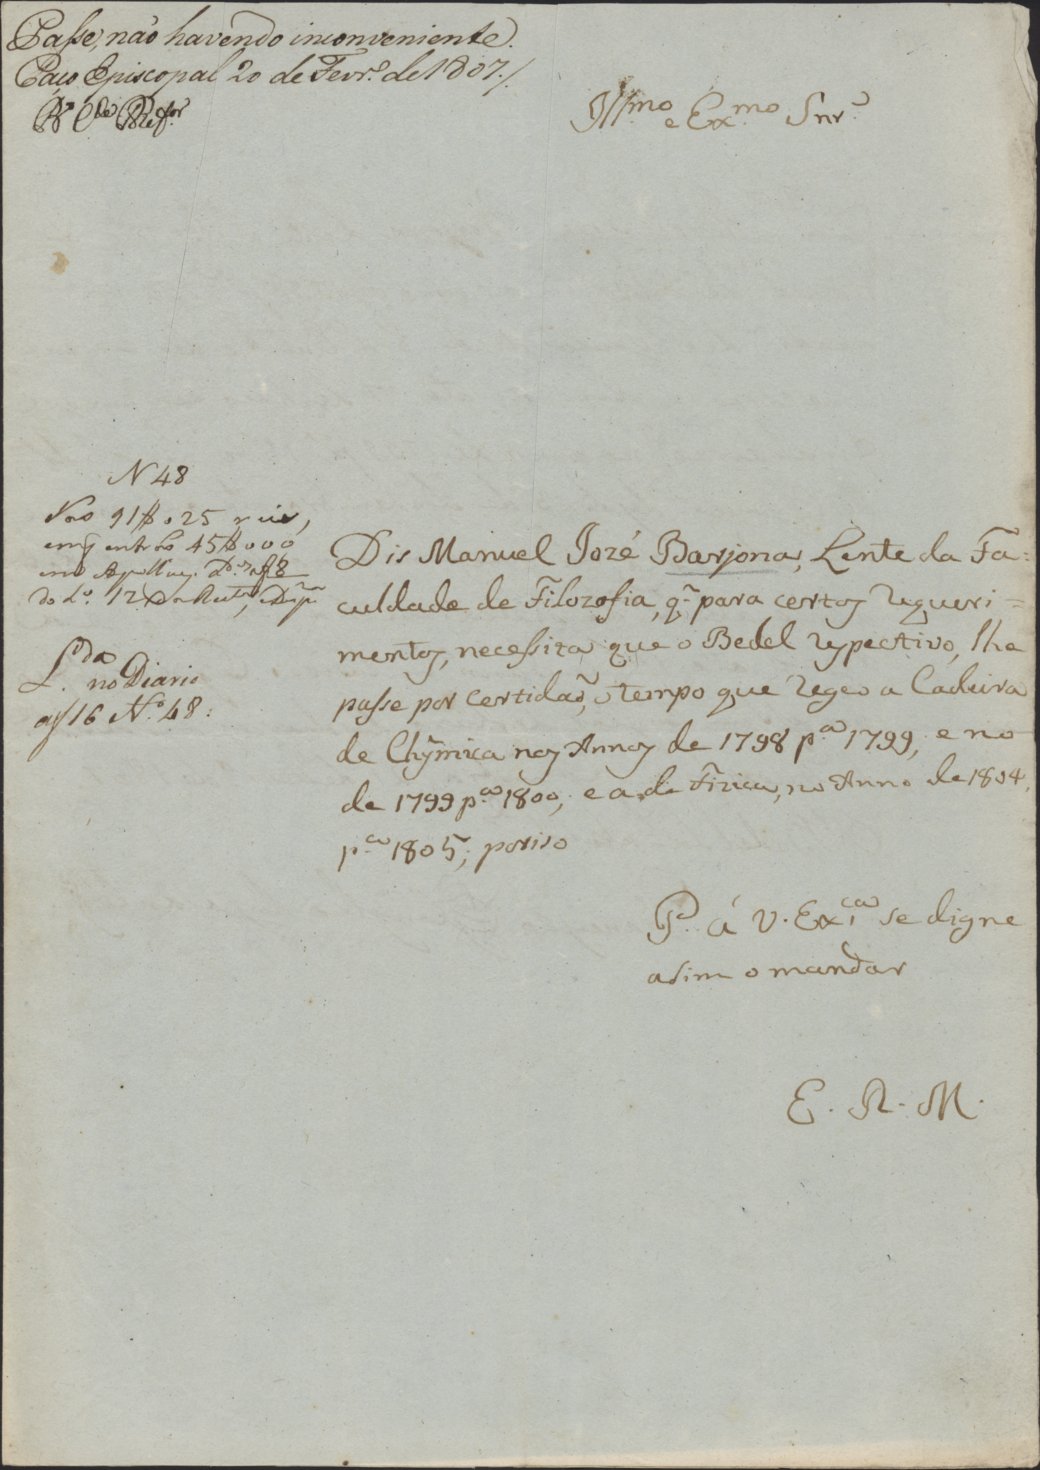 Passe, não havendo inconveniente.
Paço Episcopal 20 de Fevr.º de 1807./
Illmo e Exmo Snr.
N 48
91$025 reis,
45$000
Do L.º 12
L.da no Diario
a f 16 N.º 48:
Dis Manuel Jozé Barjona, Lente da Fa=
culdade de Filozofia, q. para certos requeri=
mentos, necessita que o Bedel respectivo, lhe
passe por certidaõ, o tempo que regeo a Cadeira
de Chymica nos Annos de 1798 p.a 1799, e no
de 1799 p.a 1800, e a de Fizica, no Anno de 1804,
p.a 1805; poriso
P. á V. Ex.cia se digne
asim o mandar
E. R. M.